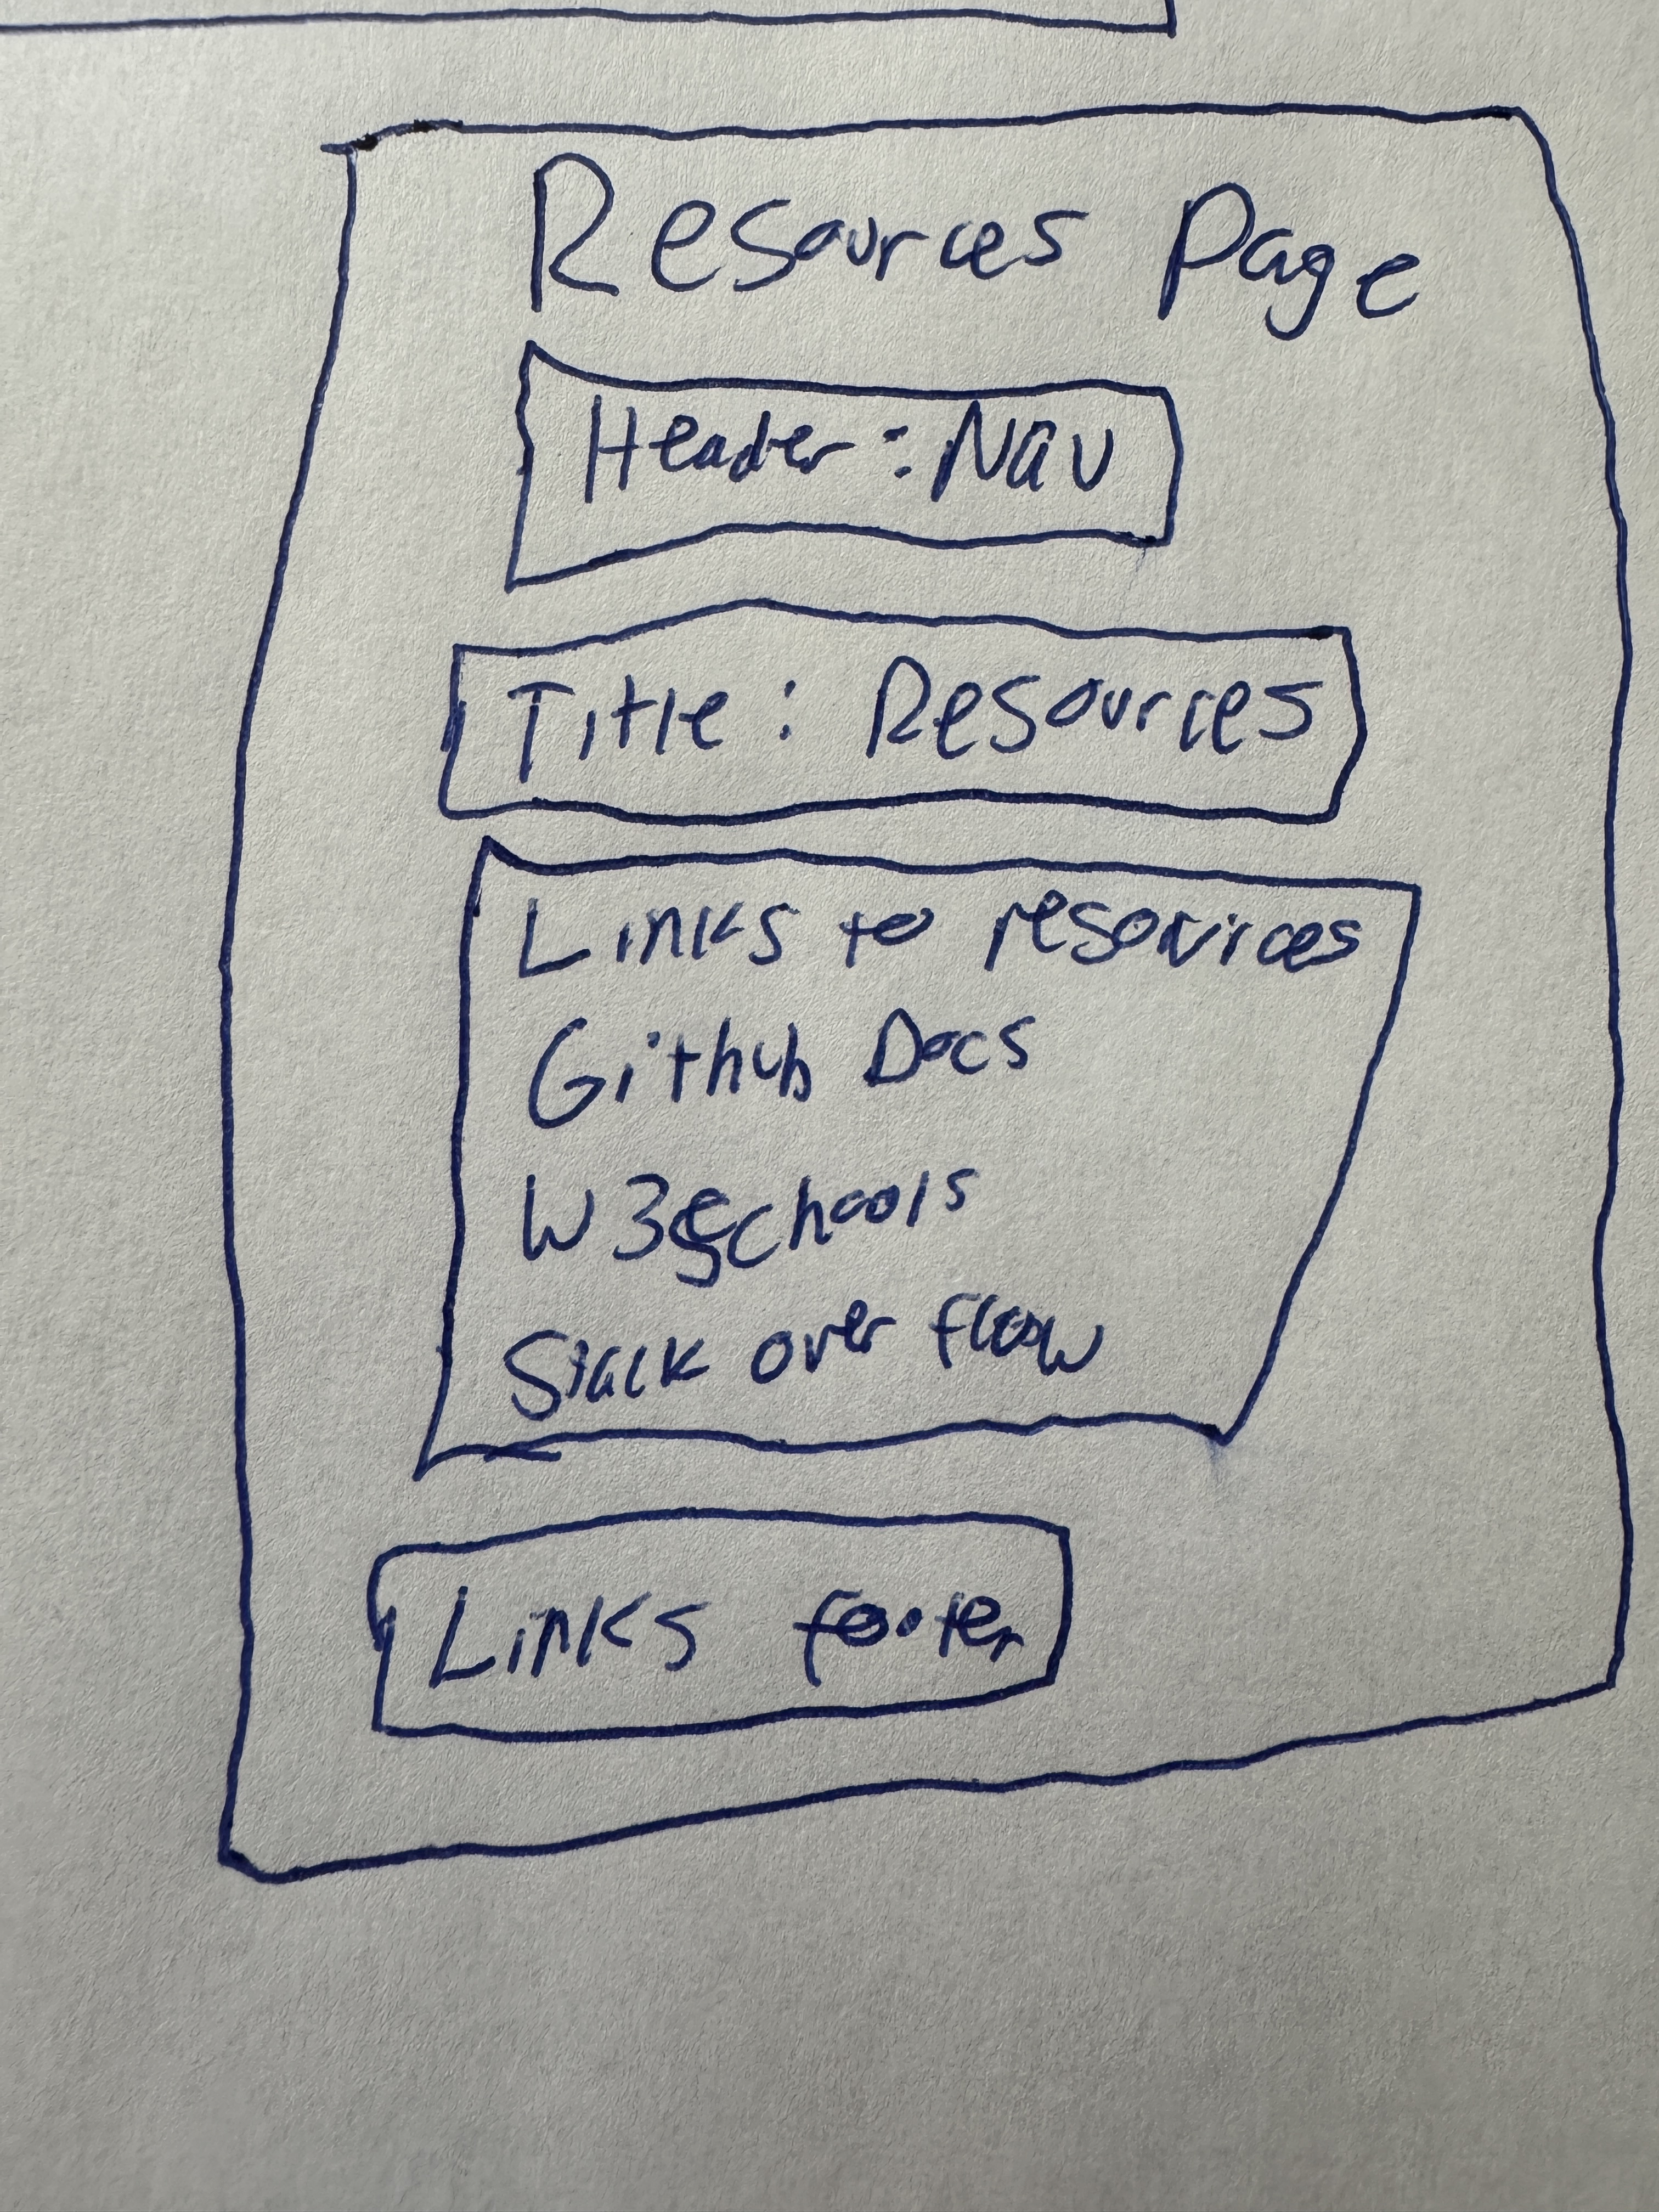 Resources Page
Header: Nav
Title: Resources
Links to resources
Github Docs
W3Schools
Stack over flow
Links footer